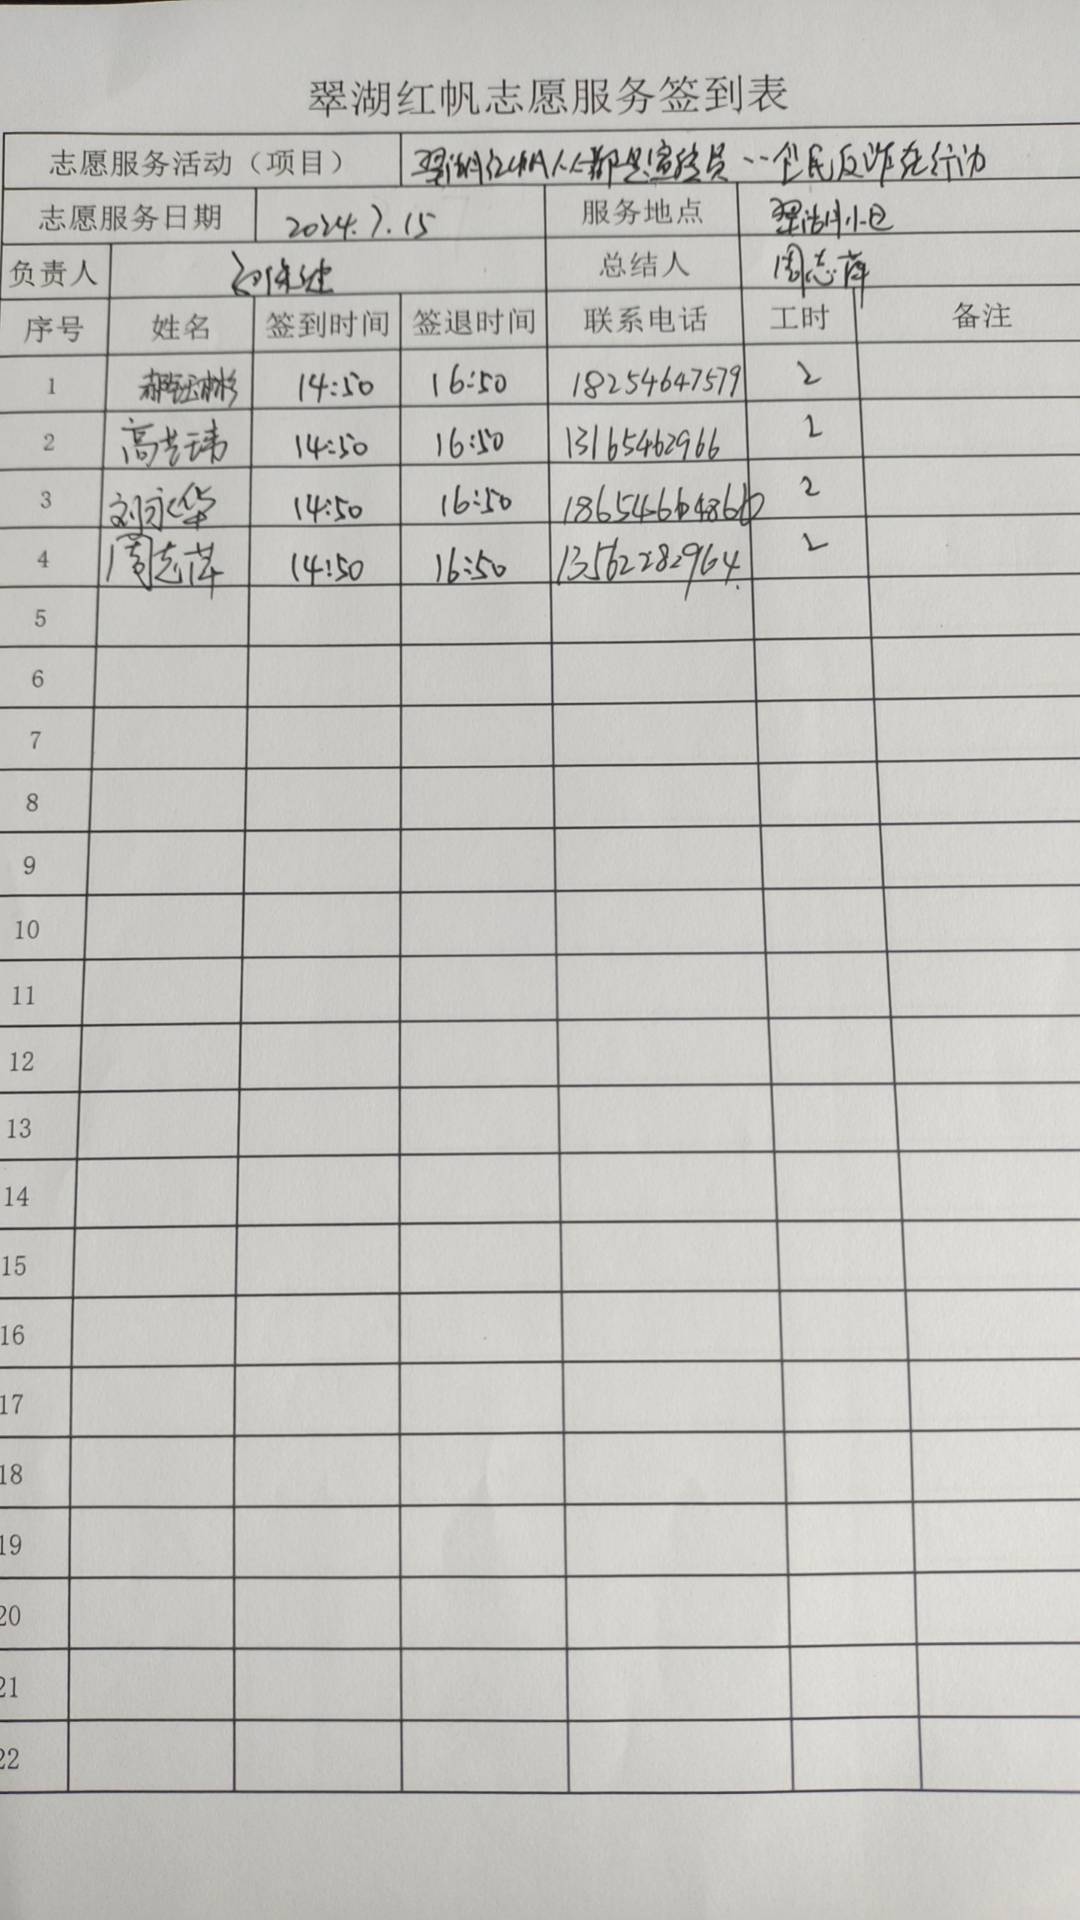 翠湖红帆志愿服务签到表
志愿服务活动（项目） 翠湖红帆人人都是宣传员··全民反诈在行动
志愿服务日期 2024.7.15 服务地点 翠湖小区
负责人 总结人 周志萍
序号 姓名 签到时间 签退时间 联系电话 工时 备注
1 14:50 16:50 18254647579 2
2 14:50 16:50 13165462966 2
3 刘永华 14:50 16:50 2
4 周志萍 14:50 16:50 13562282964 2
5
6
7
8
9
10
11
12
13
14
15
16
17
18
19
20
21
22